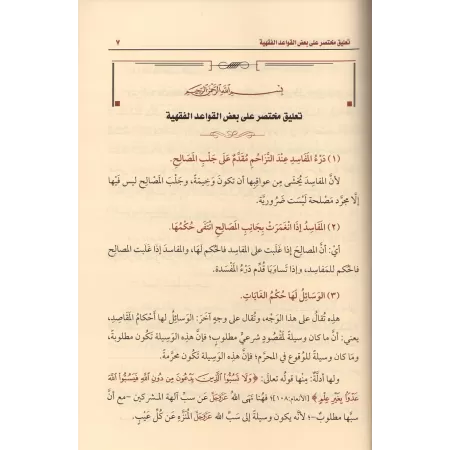 تعليق مختصر على بعض القواعد الفقهية ٧
بسم الله الرحمن الرحيم
تعليق مختصر على بعض القواعد الفقهية
(١) دَرْءُ المَفَاسِدِ عِنْدَ التَّزَاحُمِ مُقَدَّمٌ عَلَى جَلْبِ المَصَالِحِ.
لأنَّ المفاسدَ يُخشَى مِن عواقبِها أن تكونَ وَخِيمَةً، وجَلْبَ المَصَالِحِ ليس فيْها
إلَّا مجرَّد مَصْلحة لَيْسَت ضَرُوريَّة.
(٢) المَفَاسِدُ إِذَا انْغَمَرَتْ بِجَانِبِ المَصَالِحِ انْتَفَى حُكْمُهَا.
أيْ: أنَّ المصالحَ إذا غَلَبت على المفاسد فالحُكم لَهَا، والمفاسدَ إذا غَلَبت المصالح
فالحُكم للمَفاسد، وإذا تَساوَيَا قُدِّم دَرْءُ المَفْسَدة.
(٣) الوَسَائِلُ لَهَا حُكْمُ الغَايَاتِ.
هذِه تُقالُ على هذا الوَجْه، وتُقال على وجهٍ آخَرَ: الوَسائِلُ لها أحْكامُ المَقاصِدِ،
يعني: أنَّ ما كان وسيلةً لمَقْصُودٍ شرعيٍّ مطلوبٍ؛ فإنَّ هذِه الوَسِيلة تَكُون مطلوبةً،
ومَا كان وَسِيلةً للوُقوع في المحرَّم؛ فإنَّ هذه الوَسِيلةَ تكونُ محرَّمةً.
ولها أدلَّةٌ: مِنْها قولُه تعالَى: ﴿وَلَا تَسُبُّوا الَّذِينَ يَدْعُونَ مِن دُونِ اللَّهِ فَيَسُبُّوا اللَّهَ
عَدْوًا بِغَيْرِ عِلْمٍ﴾ [الأنعام:١٠٨]؛ فهُنَا نَهَى اللهُ عَزَّوَجَلَّ عَن سبِّ آلهةِ المشرِكين -مع أنَّ
سبَّها مطلوبٌ-؛ لأنَّه يكون وسيلةً إلى سَبِّ اللهِ عَزَّوَجَلَّ المُنَزَّهِ عَن كُلِّ عَيْبٍ.